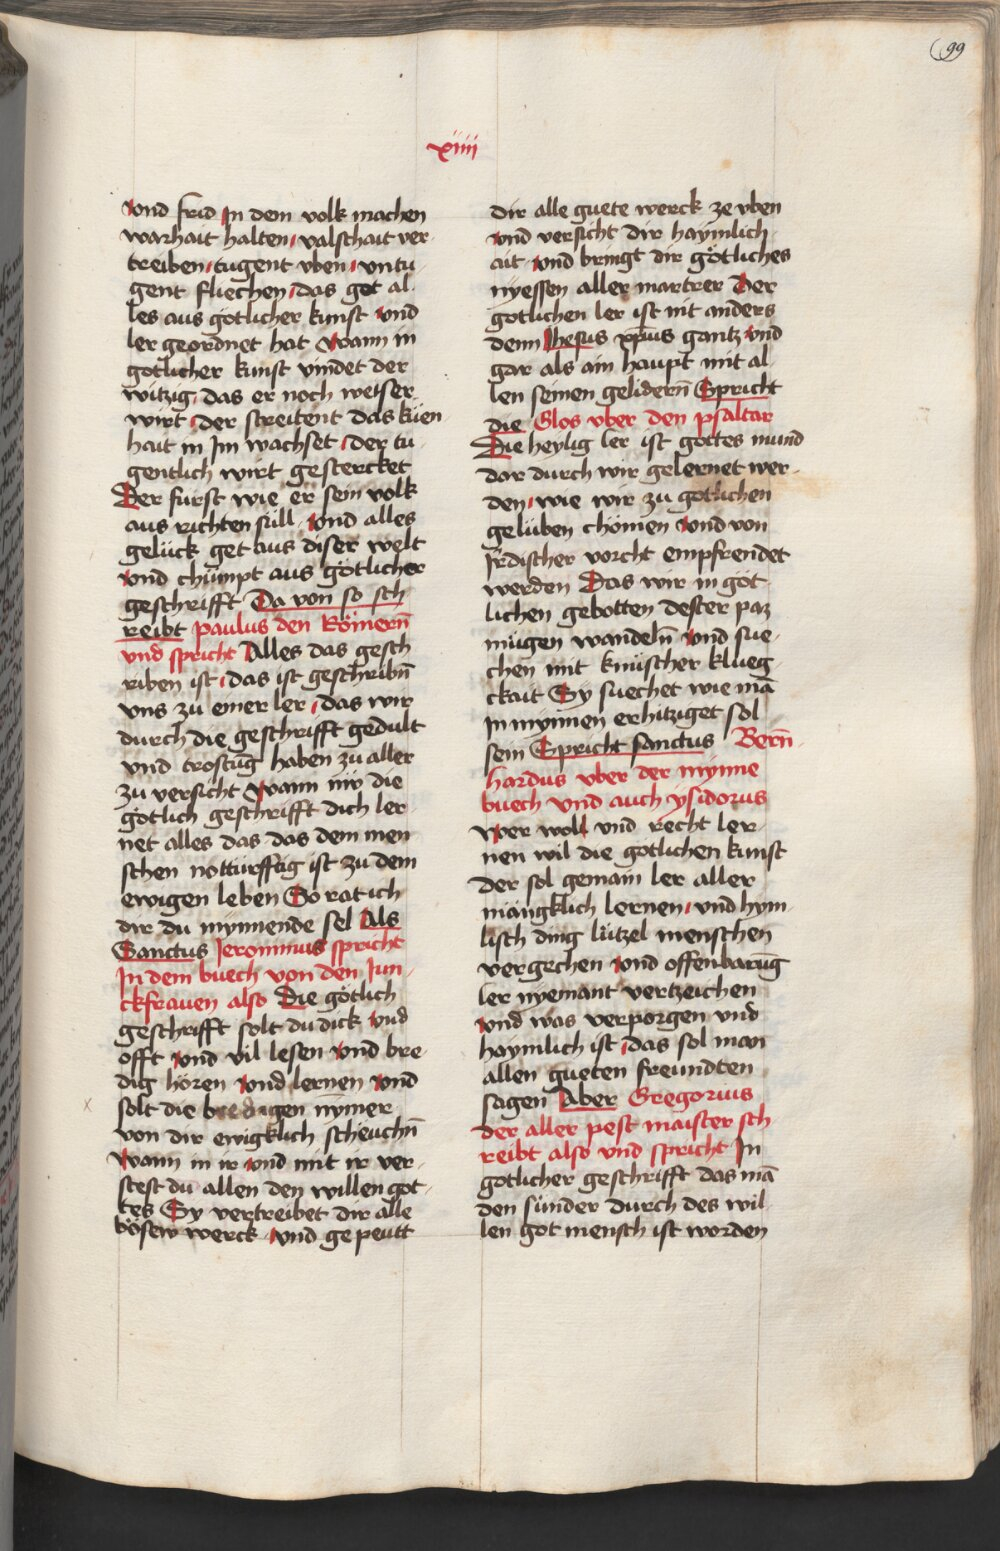 99
xiiii
vnd frid In dem volk machen
warhait halten valschait ver
treiben tugent vben vntu
gent fliechen das get al
les aus gotlicher kunst vnd
ler geordnet hat wann in
gotlicher kunst vindet der
witzig das er noch weiser
wirt der streitent das küen
hait in Im wachset der tu
gentlich wirt gestercket
Der furst wie er sein volk
aus richten süll vnd alles
gelück get aus diser welt
vnd chümpt aus götlicher
geschrifft Da von so sch
reibt paulus den Römern̄
vnd spricht Alles das gesch
riben ist das ist geschribn̄
vns zu einer ler das wir
durch die geschrifft gedult
vnd trostūg haben zu aller
zu versicht wann nÿ die
götlich geschrifft dich ler
net alles das das dem men
schen notturfftig ist zu dem
ewigen leben So rat ich
dir du mynnende sel Als
Sanctus Jeronimus spricht
In dem buech von den Jun
ckfrauen also Die götlich
geschrifft solt du dick vnd
offt vnd vil lesen vnd bre
dig hören vnd lernen vnd
solt die bredigen nymer
von dir ewigklich scheuchn̄
wann in ir vnd mit ir ver
stest du allen den willen got
tes Sy vertreibet dir alle
bösew werck vnd gepeutt
dir alle guete werck ze vben
vnd versicht dir haymlich
ait vnd bringt dir götliches
nyessen aller martrer Der
gotlichen ler ist nit anders
denn Jhesus xp̄us gantz vnd
gar als ain haupt mit al
len seinen gelidern̄ Spricht
die Glos vber den psaltar
Die heylig ler ist gottes mund
dar durch wir gelernet wer
den wie wir zu gotlichen
gelüben chömen vnd von
Irdischer vorcht empfrendet
werden Das wir in göt
lichen gebotten dester paz
mügen wandeln̄ vnd sue
chen mit knüscher klueg
ckait Sy suechet wie mā
In mynnen erhitziget sol
sein Spricht sanctus Bern̄
hardus vber der mynne
buech vnd auch ysidorus
wer woll vnd recht ler
nen wil die gotlichen kunst
der sol gemain ler aller
mängklich lernen vnd hym
lisch ding lützel menschen
vergechen vnd offenbarūg
ler nyemant vertzeichen
vnd was verporgen vnd
haymlich ist das sol man
allen gueten freundten
sagen Aber Gregorius
der aller pest maister sch
reibt also vnd spricht In
gotlicher geschrifft das mā
den sünder durch des wil
len got mensch ist worden